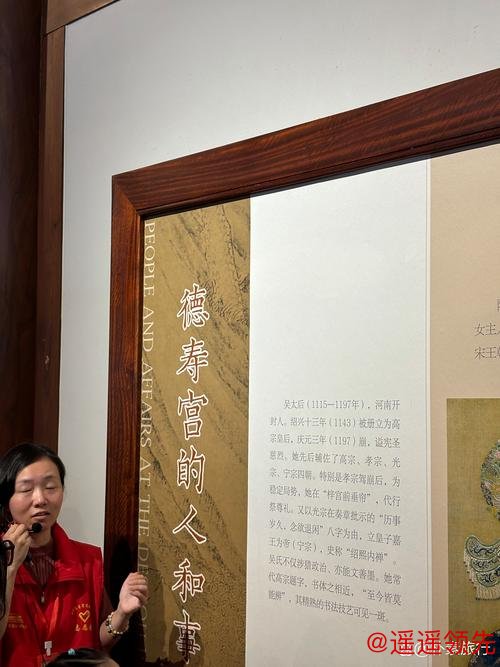 PEOPLE AND AFFAIRS AT THE DE
德寿宫的人和事
吴太后（1115—1197年），河南开
封人。绍兴十三年（1143）被册立为高
宗皇后，庆元三年（1197）崩，谥宪圣
慈烈。她先后辅佐了高宗、孝宗、光
宗、宁宗四朝。特别是孝宗驾崩后，为
稳定局势，她在“梓宫前垂帘”，代行
祭尊礼。又以光宗在奏章批示的“历事
岁久，念欲退闲”八字为由，立皇子嘉
王为帝（宁宗），史称“绍熙内禅”。
吴氏不仅涉猎政治、亦能文善墨。她常
代高宗题字，书体之相近，“至今皆莫
能辨”，其精熟的书法技艺可见一斑。
女主
宋王
@遥遥领先
旅行